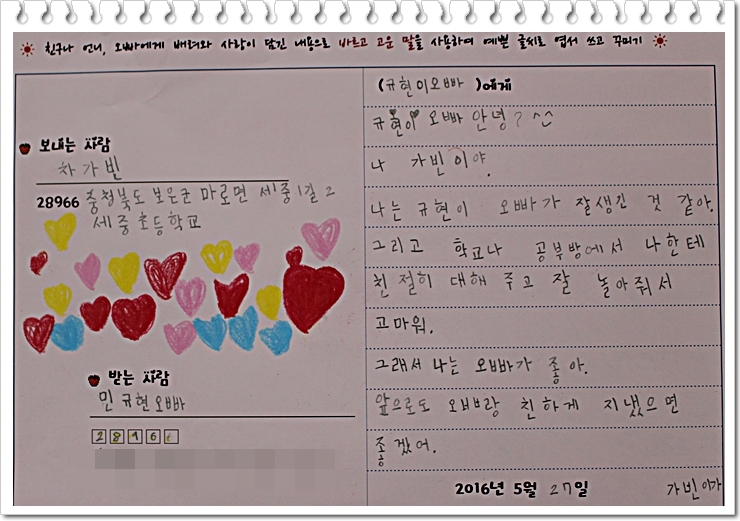 친구나 언니, 오빠에게 배려와 사랑이 담긴 내용으로 바르고 고운 말을 사용하여 예쁜 글씨로 엽서 쓰고 꾸미기
보내는 사람
차가빈
28966 충청북도 보은군 마로면 세중1길 2
세중초등학교
받는 사람
민규현오빠
(규현이오빠 )에게
규현이 오빠 안녕? ^^
나 가빈이야.
나는 규현이 오빠가 잘생긴 것 같아.
그리고 학교나 공부방에서 나한테
친절히 대해 주고 잘 놀아줘서
고마워.
그래서 나는 오빠가 좋아.
앞으로도 오빠랑 친하게 지냈으면
좋겠어.
2016년 5월 27일
가빈이가